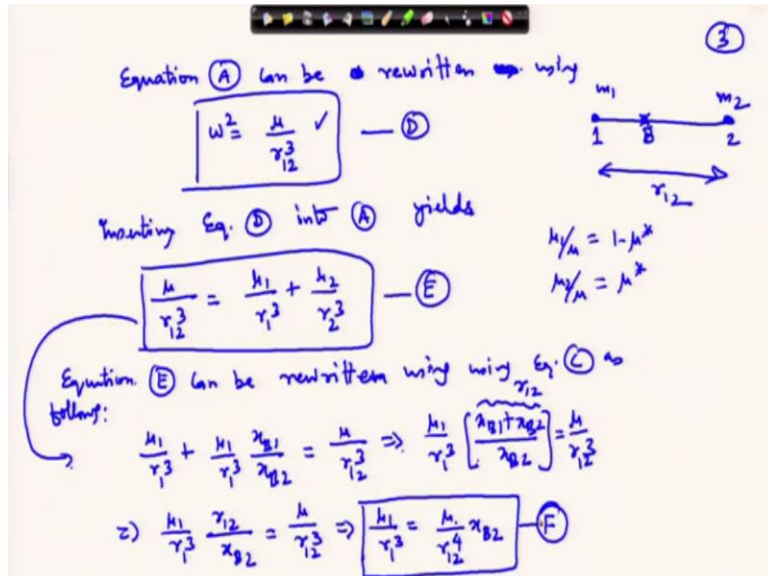 3
Equation A can be rewritten using
ω² = μ/r₁₂³ ✓ — D
m₁ m₂
1 B 2
r₁₂
Inserting Eq. D into A yields
μ₁/μ = 1-μ*
μ₂/μ = μ*
μ/r₁₂³ = μ₁/r₁³ + μ₂/r₂³ — E
Equation E can be rewritten using using Eq. C as
follows:
r₁₂
μ₁/r₁³ + μ₁/r₁³ x_B1/x_B2 = μ/r₁₂³ => μ₁/r₁³ [(x_B1 + x_B2)/x_B2] = μ/r₁₂³
=) μ₁/r₁³ r₁₂/x_B2 = μ/r₁₂³ => μ₁/r₁³ = μ/r₁₂⁴ x_B2 — F